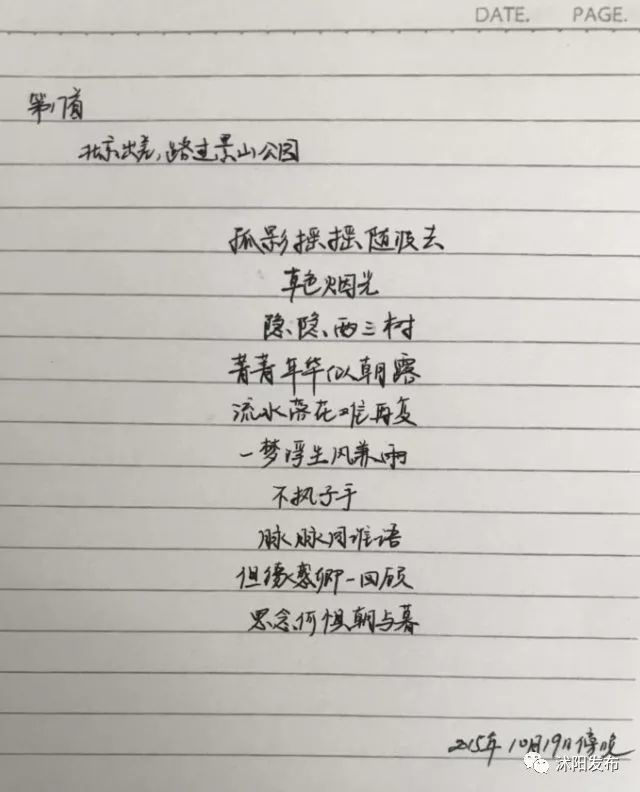 DATE. PAGE.
第17首
北京出差，路过景山公园
孤影摇摇随波去
草色烟光
隐隐两三树
菁菁年华似朝露
流水落花难再复
一梦浮生风兼雨
不执子手
脉脉同谁语
但惹卿一回顾
思念何惧朝与暮
2015年10月19日傍晚
沭阳发布